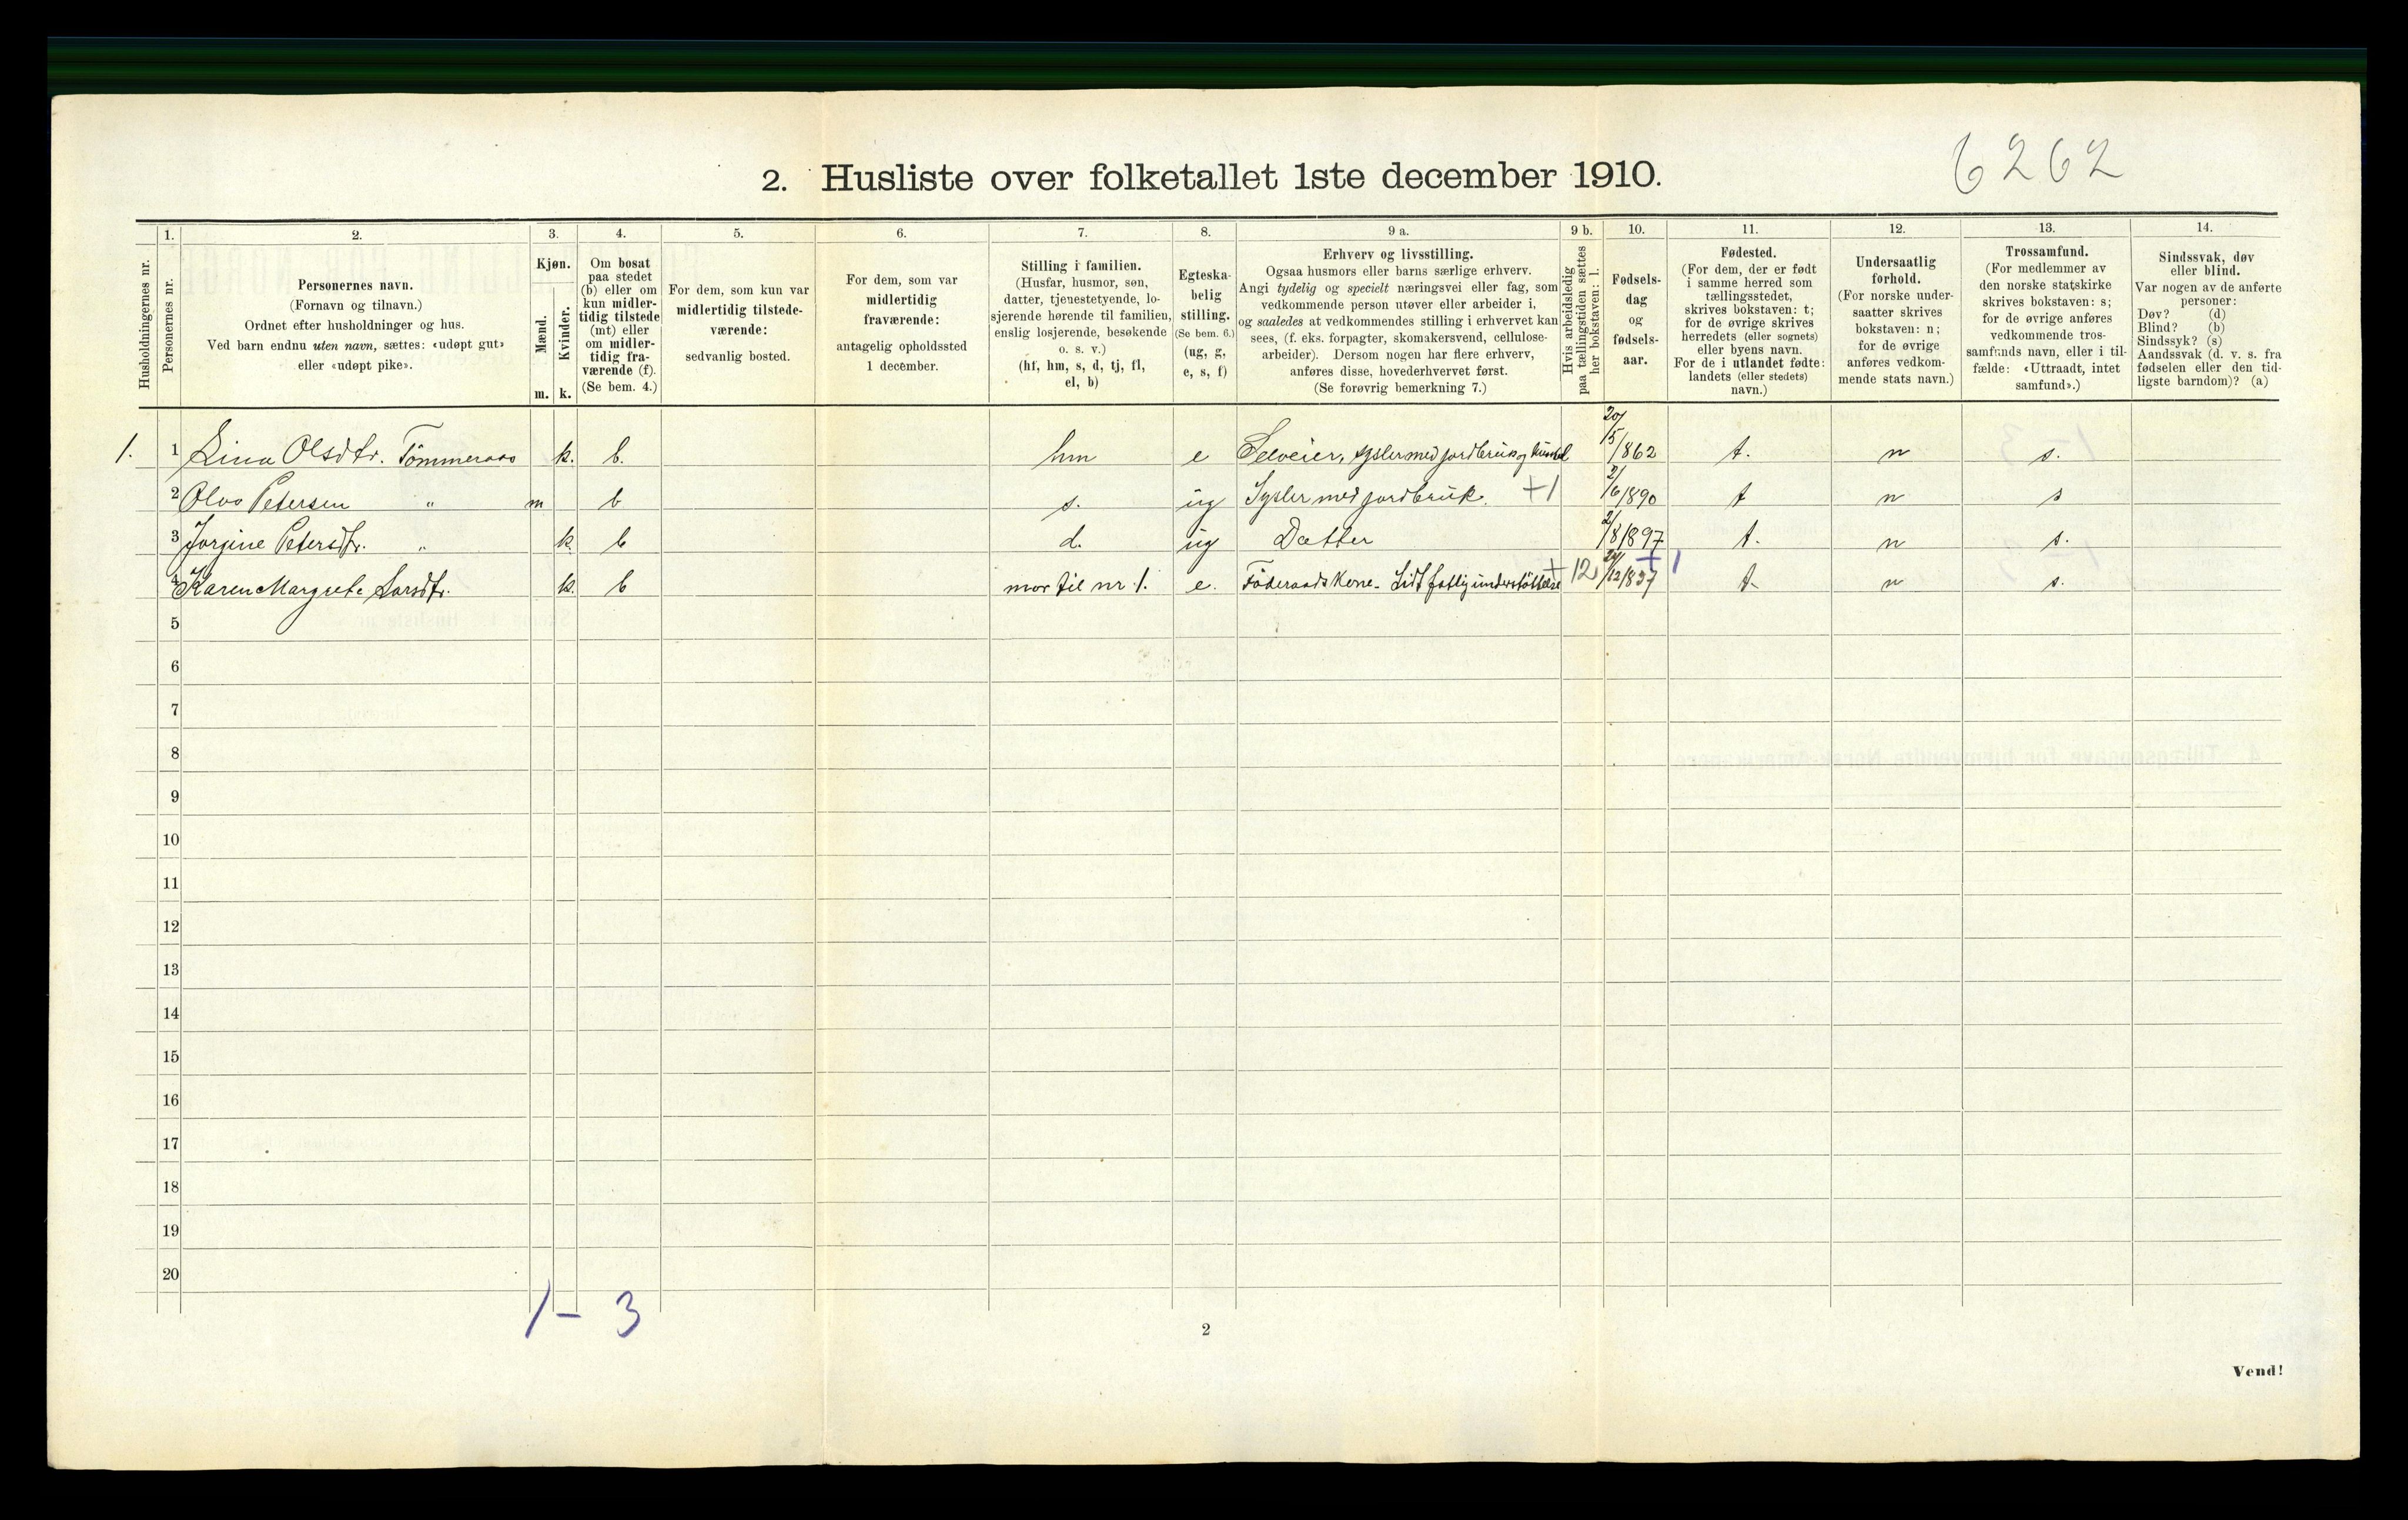 6262
2. Husliste over folketallet 1ste december 1910.
Husholdningernes nr.
1.
Personernes nr.
2.
Personernes navn.
(Fornavn og tilnavn.)
Ordnet efter husholdninger og hus.
Ved barn endnu uten navn, sættes: «udøpt gut»
eller «udøpt pike».
3.
Kjøn.
Mænd.
Kvinder.
m. k.
4.
Om bosat
paa stedet
(b) eller om
kun midler-
tidig tilstede
(mt) eller
om midler-
tidig fra-
værende (f).
(Se bem. 4.)
5.
For dem, som kun var
midlertidig tilstede-
værende:
sedvanlig bosted.
6.
For dem, som var
midlertidig
fraværende:
antagelig opholdssted
1 december.
7.
Stilling i familien.
(Husfar, husmor, søn,
datter, tjenestetyende, lo-
sjerende hørende til familien,
enslig losjerende, besøkende
o. s. v.)
(hf, hm, s, d, tj, fl,
el, b)
8.
Egteska-
belig
stilling.
(Se bem. 6.)
(ug, g,
e, s, f)
9 a.
Erhverv og livsstilling.
Ogsaa husmors eller barns særlige erhverv.
Angi tydelig og specielt næringsvei eller fag, som
vedkommende person utøver eller arbeider i,
og saaledes at vedkommendes stilling i erhvervet kan
sees, (f. eks. forpagter, skomakersvend, cellulose-
arbeider). Dersom nogen har flere erhverv,
anføres disse, hovederhvervet først.
(Se forøvrig bemerkning 7.)
9 b.
Hvis arbeidsledig
paa tællingstiden sættes
her bokstaven: l.
10.
Fødsels-
dag
og
fødsels-
aar.
11.
Fødested.
(For dem, der er født
i samme herred som
tællingsstedet,
skrives bokstaven: t;
for de øvrige skrives
herredets (eller sognets)
eller byens navn.
For de i utlandet fødte:
landets (eller stedets)
navn.)
12.
Undersaatlig
forhold.
(For norske under-
saatter skrives
bokstaven: n;
for de øvrige
anføres vedkom-
mende stats navn.)
13.
Trossamfund.
(For medlemmer av
den norske statskirke
skrives bokstaven: s;
for de øvrige anføres
vedkommende tros-
samfunds navn, eller i til-
fælde: «Uttraadt, intet
samfund».)
14.
Sindssvak, døv
eller blind.
Var nogen av de anførte
personer:
Døv? (d)
Blind? (b)
Sindssyk? (s)
Aandssvak (d. v. s. fra
fødselen eller den tid-
ligste barndom)? (a)
1. 1 Lina Olsdtr. Tömmeraas k. b. hm e Selveier, sysler med jordbruk og 20/5/862 t. n s.
2 Olav Petersen " m b s. ug Sysler med jordbruk. +1 2/6/890 t n s
3 Jorgine Petersdtr. " k. b d. ug Datter 2/8/897 t. n s.
4 Karen Margrete Larsdtr. k. b mor til nr 1. e. Föderaadskone - Lidt fattigunderstöttelse + 12 24/12/837 +1 t. n s.
5
6
7
8
9
10
11
12
13
14
15
16
17
18
19
20
1 - 3
2
Vend!